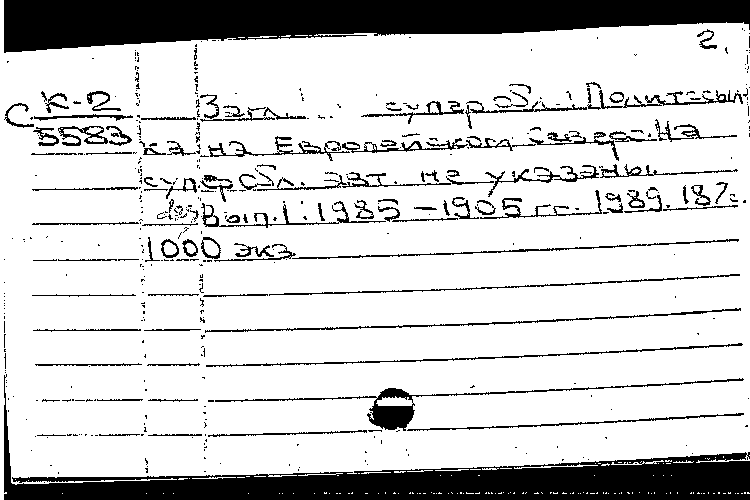 2.
С К-2 Загл. суперобл.: Политссыл-
5583 ка на Европейском Севере. На
суперобл. авт. не указаны.
без Вып.1: 1985 – 1905 гг. 1989. 187с.
1000 экз